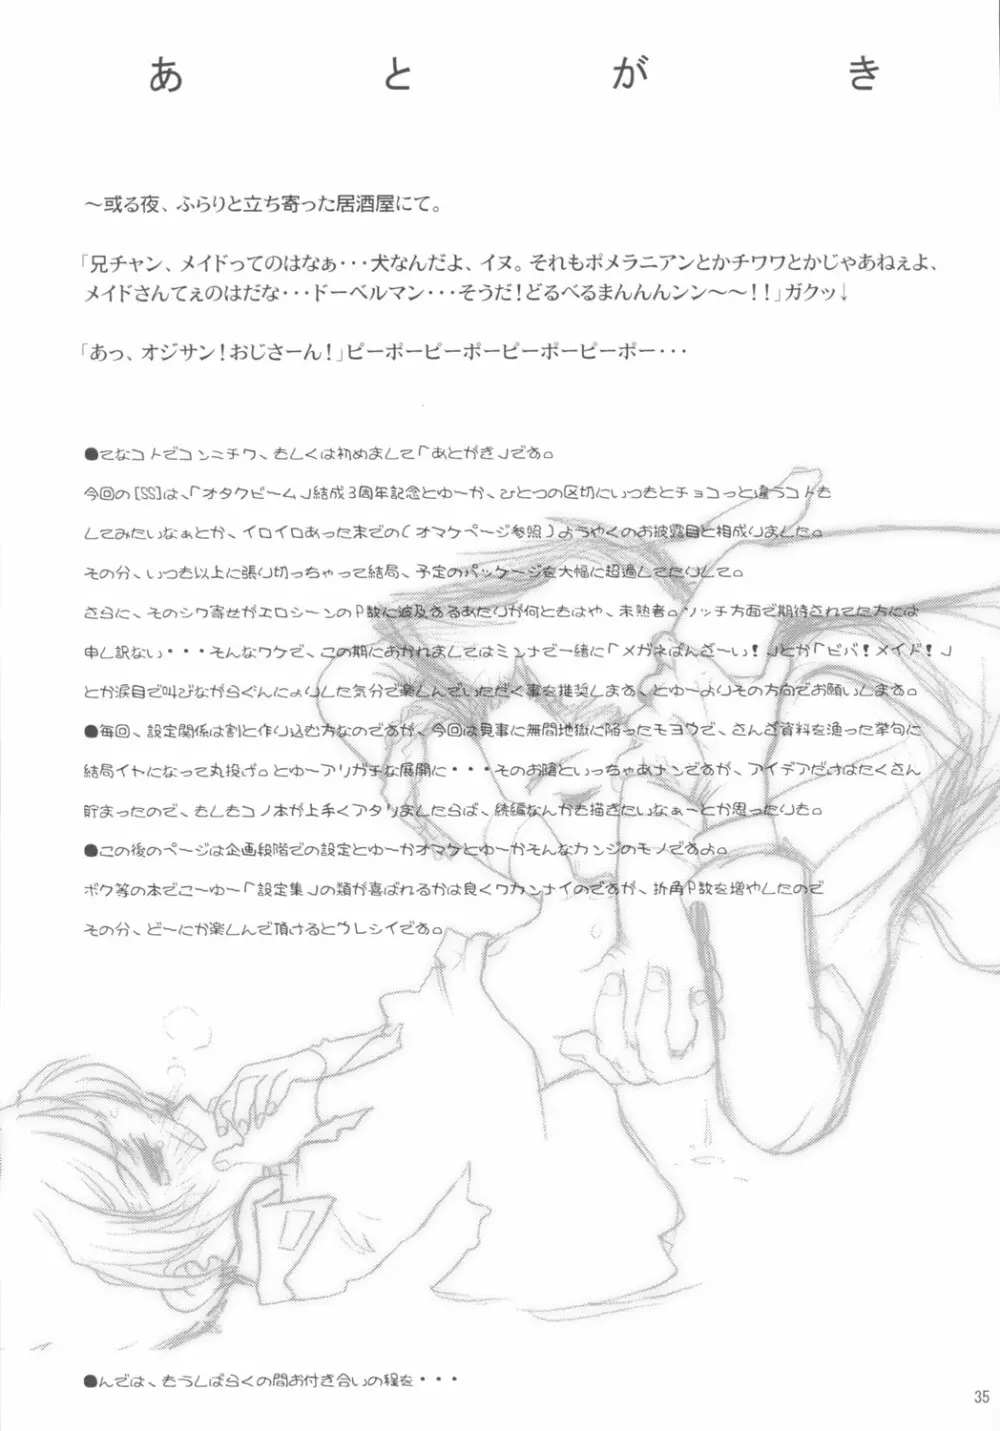 あとがき
～或る夜、ふらりと立ち寄った居酒屋にて。
「兄チャン、メイドってのはなぁ・・・犬なんだよ、イヌ。それもポメラニアンとかチワワとかじゃあねぇよ、
メイドさんてぇのはだな・・・ドーベルマン・・・そうだ！どるべるまんんんンン～～！！」ガクッ↓
「あっ、オジサン！おじさーん！」ピーポーピーポーピーポーピーポー・・・
●てなコトでコンニチワ、もしくは初めまして「あとがき」です。
今回の[SS]は、「オタクビーム」結成３周年記念とゆーか、ひとつの区切にいつもとチョコっと違うコトも
してみたいなぁとか、イロイロあった末での(オマケページ参照)ようやくのお披露目と相成りました。
その分、いつも以上に張り切っちゃって結局、予定のパッケージを大幅に超過してたりして。
さらに、そのシワ寄せがエロシーンのＰ数に波及するあたりが何ともはや、未熟者。ソッチ方面で期待されてた方には
申し訳ない・・・そんなワケで、この期におかれましてはミンナで一緒に「メガネばんざーい！」とか「ビバ！メイド！」
とか涙目で叫びながらぐんにょりした気分で楽しんでいただく事を推奨します、とゆーよりその方向でお願いします。
●毎回、設定関係は割と作り込む方なのですが、今回は見事に無間地獄に陥ったモヨウで、さんざ資料を漁った挙句に
結局イトになって丸投げ。とゆーアリガチな展開に・・・そのお陰といっちゃあナンですが、アイデアだけはたくさん
貯まったので、もしもコノ本が上手くアタリましたらば、続編なんかも描きたいなぁーとか思ったりも。
●この後のページは企画段階での設定とゆーかオマケとゆーかそんなカンジのモノですよ。
ボク等の本でこーゆー「設定集」の類が喜ばれるかは良くワカンナイのですが、折角Ｐ数を増やしたので
その分、どーにか楽しんで頂けるとウレシイです。
●んでは、もうしばらくの間お付き合いの程を・・・
35